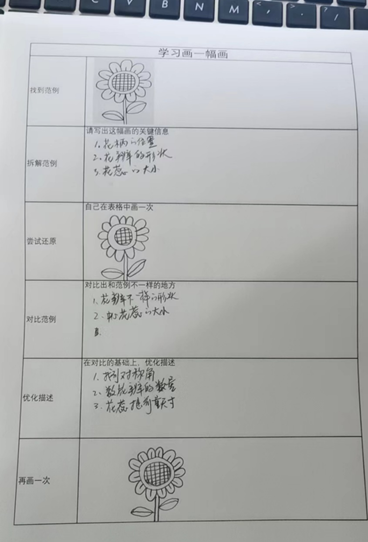 V B N M
学习画一幅画
找到范例
拆解范例
请写出这幅画的关键信息
1. 花柄的位置
2. 花瓣的形状
3. 花蕊的大小
尝试还原
自己在表格中画一次
对比范例
对比出和范例不一样的地方
1. 花瓣不一样的形状
2. 花蕊的大小
优化描述
在对比的基础上,优化描述
1. 找到对称角
2. 数花瓣的数量
3. 花蕊 尺寸
再画一次